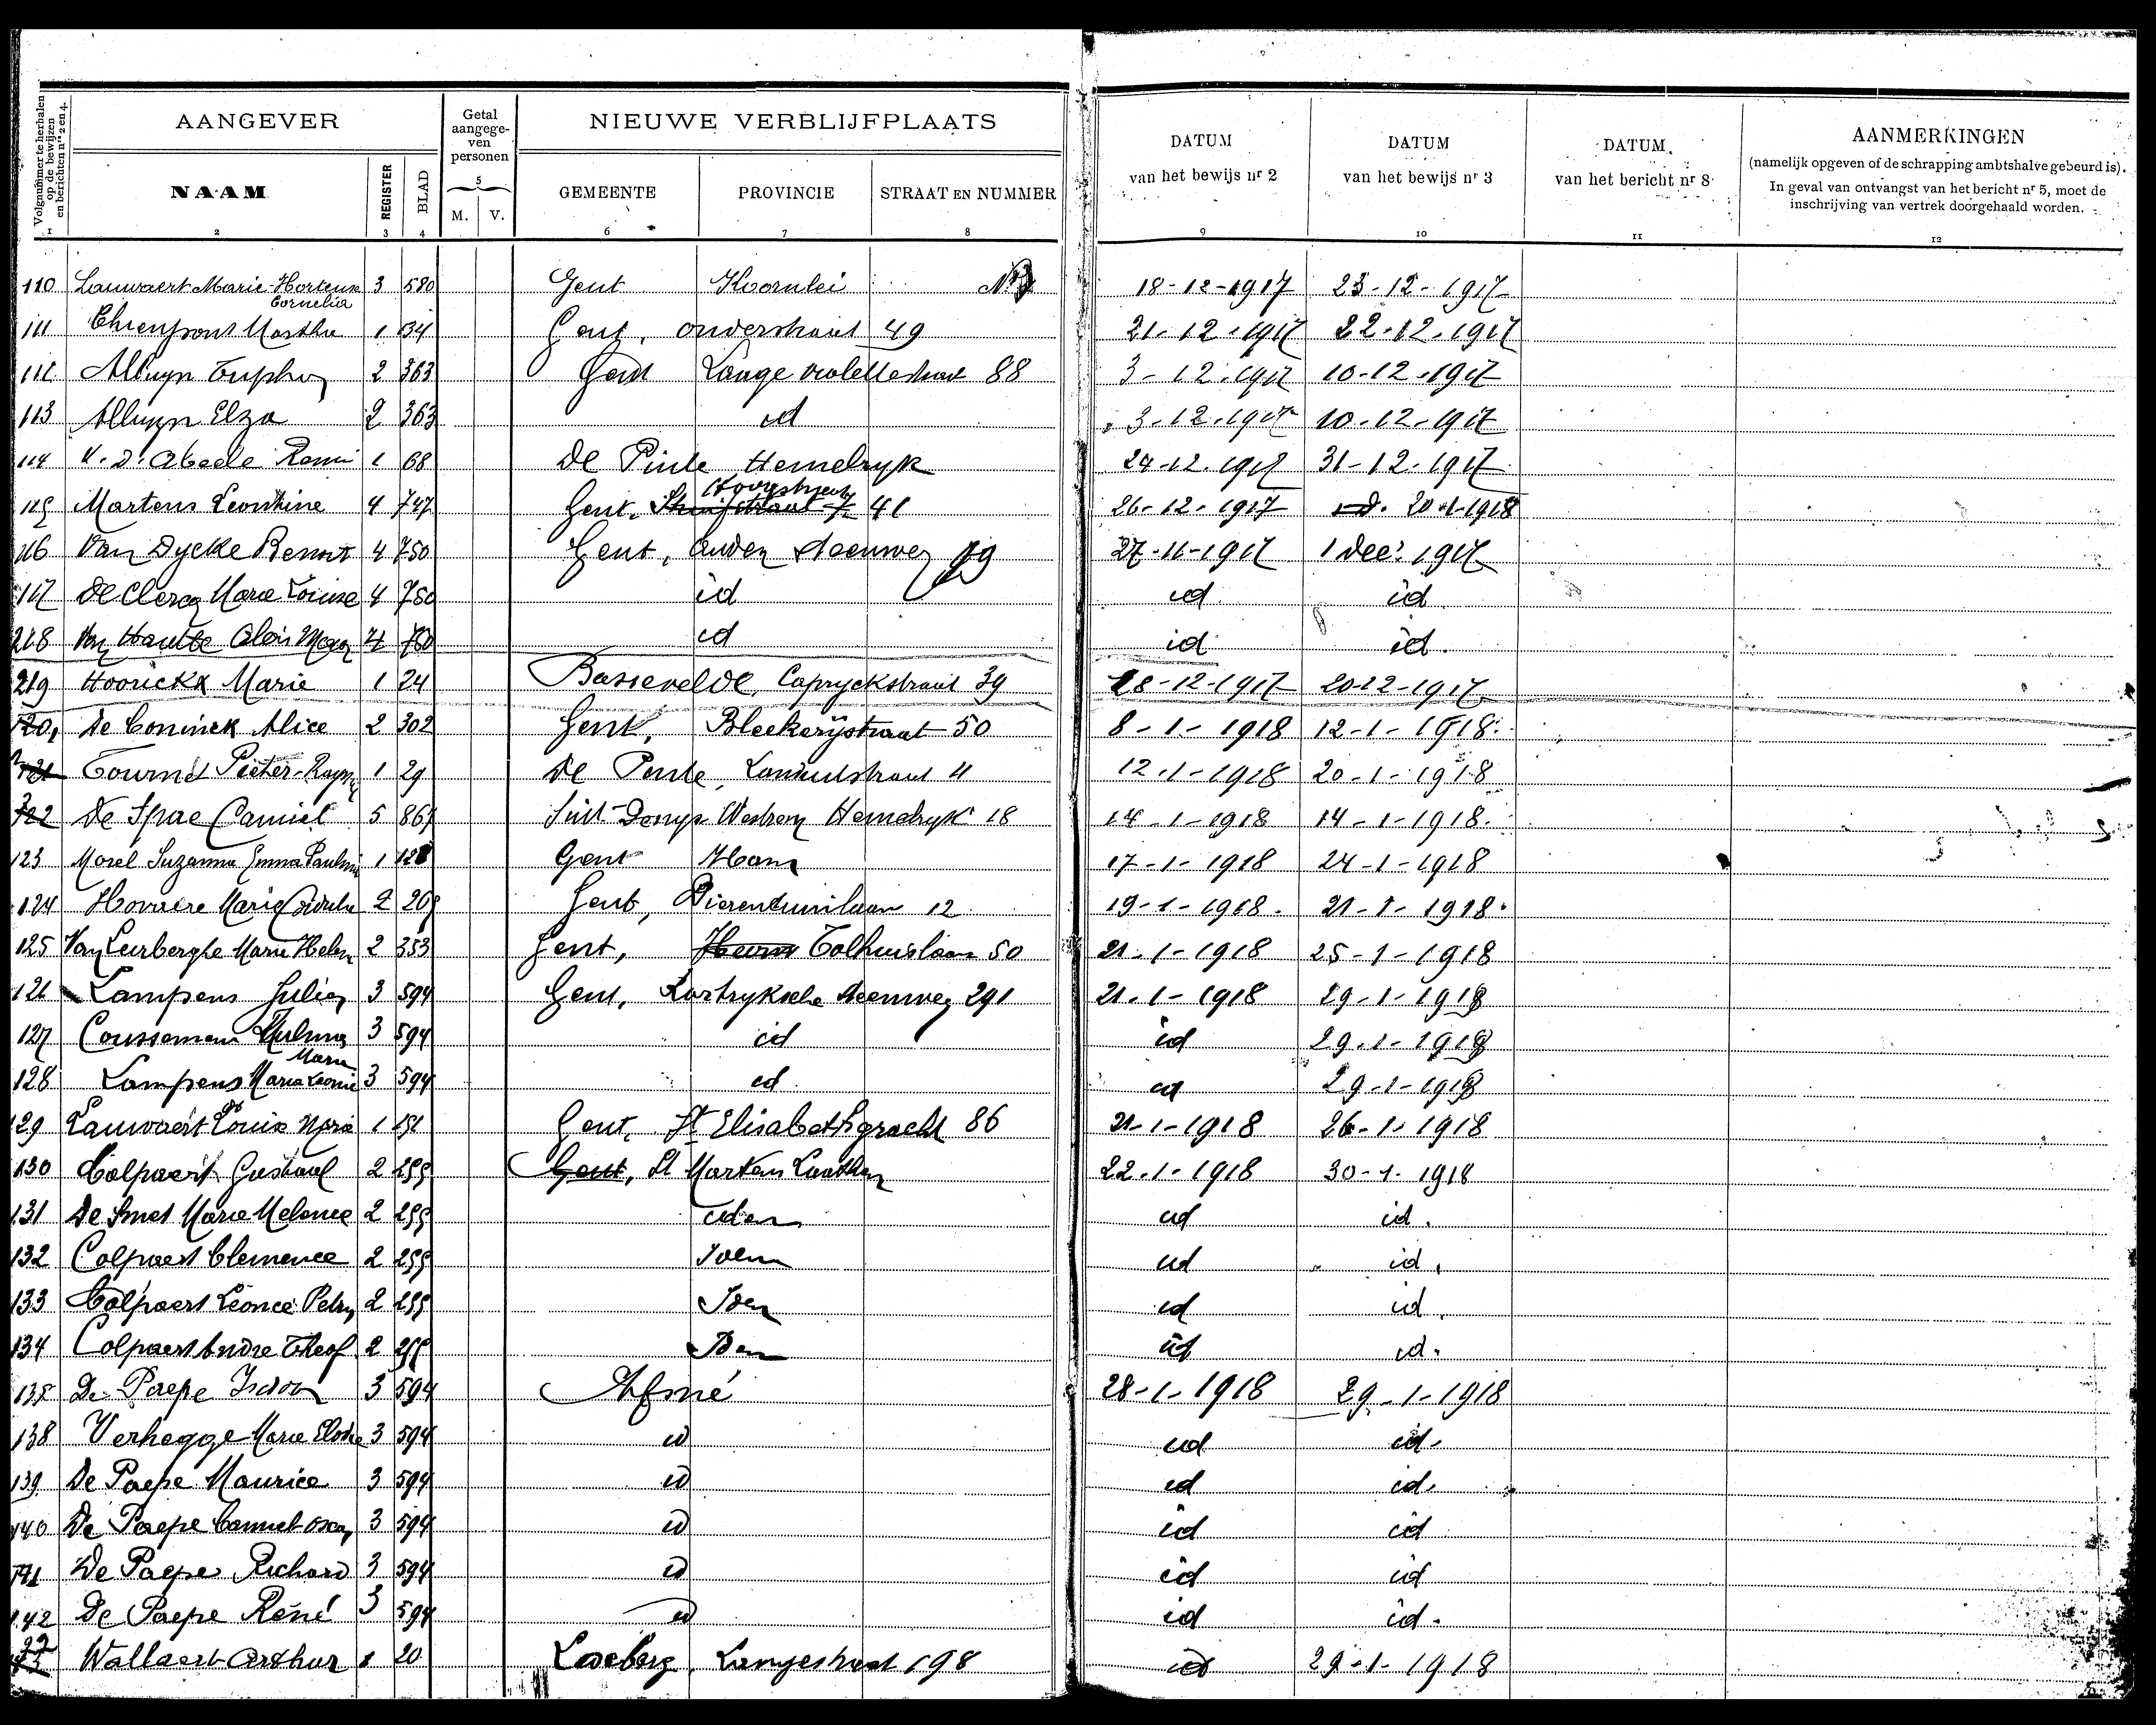 Volgnummer te herhalen op de bewijzen en berichten nrs 2 en 4.
AANGEVER
Getal aangegeven personen
NIEUWE VERBLIJFPLAATS
DATUM van het bewijs nr 2
DATUM van het bewijs nr 3
DATUM van het bericht nr 8
AANMERKINGEN
(namelijk opgeven of de schrapping ambtshalve gebeurd is).
In geval van ontvangst van het bericht nr 5, moet de
inschrijving van vertrek doorgehaald worden.
NAAM REGISTER BLAD M. V. GEMEENTE PROVINCIE STRAAT EN NUMMER
1 2 3 4 5 6 7 8 9 10 11 12
110 Lauwaert Marie-Hortense Cornelia 3 580 Gent Koornlei 18-12-1917 23-12-1917
111 Martha 1 134 Gent, onderstraat 49 21-12-1917 22-12-1917
112 Alluyn 2 363 Gent Lange violettestraat 88 3-12-1917 10-12-1917
113 Alluyn Elza 2 363 id 3-12-1917 10-12-1917
114 V. D. Abeele Remi 1 68 De Pinte Hemelryk 24-12-1917 31-12-1917
115 Martens Leontine 4 747 Gent, Hoogstraat 41 26-12-1917 20-1-1918
116 Van Dycke Benoit 4 750 Gent, Ouden steenweg 27-11-1917 1 Dec. 1917
117 De Clercq Marie Louise 4 750 id id id
218 Van Haute Aloïs 4 750 id id id.
219 Hoorickx Marie 1 24 Bassevelde, Capryckstraat 39 18-12-1917 20-12-1917
120 De Coninck Alice 2 302 Gent, Bleekerijstraat 50 8-1-1918 12-1-1918
121 Pieter 1 29 De Pinte, 12-1-1918 20-1-1918
122 De Spae Camiel 5 867 Sint-Denys Westrem Hemelryk 18 14-1-1918 14-1-1918.
123 Morel Suzanna Emma Paulina 1 128 Gent Ham 17-1-1918 24-1-1918
124 Marie 2 209 Gent, Dierentuinlaan 12 19-1-1918. 21-1-1918.
125 Van Leerberghe Marie Helen 2 353 Gent, Tolhuislaan 50 21-1-1918 25-1-1918
126 Lampens Julien 3 594 Gent, Kortryksche steenweg 291 21-1-1918 29-1-1918
127 Coussemens 3 594 id id 29-1-1918
128 Lampens Maria Leonie 3 594 id id 29-1-1918
129 Lauwaert Louis Maria 1 151 Gent, St Elisabethgracht 86 21-1-1918 26-1-1918
130 Colpaert Gustaaf 2 255 Gent, St Martens Laathem 22-1-1918 30-1-1918
131 De Smet Marie Melanie 2 255 idem id id.
132 Colpaert Clemence 2 255 Idem id id.
133 Colpaert Leonce Petrus 2 255 Idem id id.
134 Colpaert Andre Theof 2 255 Idem id id.
135 De Paepe Isidoor 3 594 Afsné 28-1-1918 29-1-1918
138 Verhegge Marie Elodie 3 594 id id id.
139 De Paepe Maurice 3 594 id id id.
140 De Paepe Camiel Oscar 3 594 id id id
141 De Paepe Richard 3 594 id id id
142 De Paepe René 3 594 id id id.
Wallaert Arthur 1 20 Ledeberg, Langestraat 198 id 29-1-1918